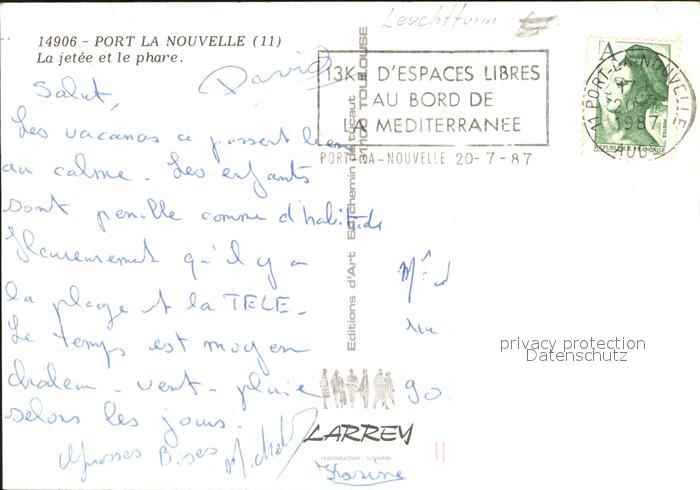 Leuchtturm
14906 - PORT LA NOUVELLE (11)
La jetée et le phare.
David
Salut,
Les vacances ce passent bien
au calme. Les enfants
sont penible comme d'habitude
Heureusement qu'il y a
la plage et la TELE.
Le temps est moyen
chaleur - vent - pluie
selons les jours.
Grosses Bises Michel
Karine
13KM D'ESPACES LIBRES
AU BORD DE
LA MEDITERRANEE
PORT-LA-NOUVELLE 20-7-87
A
REPUBLIQUE FRANÇAISE
POSTES
11 PORT-LA-NOUVELLE
17H
20-7
1987
AUDE
Editions d'Art
TOULOUSE
90
LARREY
reproduction interdite
privacy protection
Datenschutz